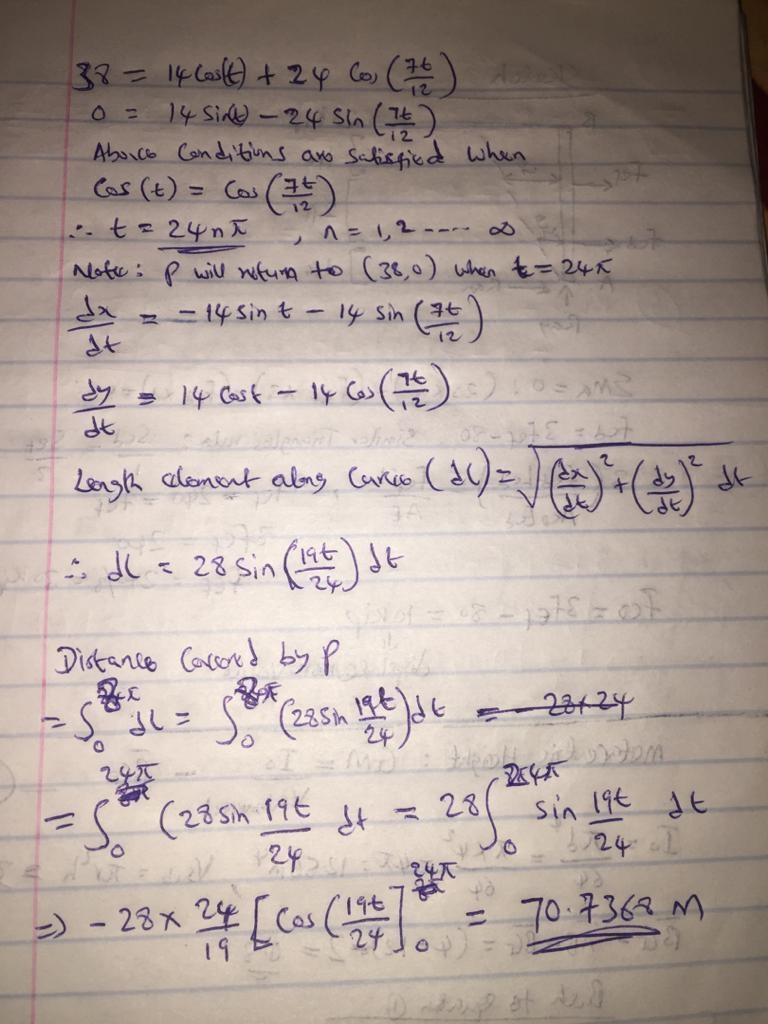 38 = 14 Cos(t) + 24 Cos (7t/12)
0 = 14 Sin(t) - 24 Sin (7t/12)
Above Conditions are Satisfied When
Cos (t) = Cos (7t/12)
∴ t = 24nπ , n = 1, 2 ---- ∞
Note: P will return to (38,0) when t = 24π
dx/dt = -14 Sin t - 14 Sin (7t/12)
dy/dt = 14 Cost - 14 Cos (7t/12)
Length element along Curve (dl) = √((dx/dt)² + (dy/dt)²) dt
∴ dl = 28 Sin (19t/24) dt
Distance Covered by P
= ∫₀ dl = ∫₀ (28 Sin 19t/24) dt = 28x24
= ∫₀^24π (28 Sin 19t/24 dt = 28 ∫₀^24π Sin 19t/24 dt
=> -28 x 24/19 [Cos (19t/24]₀^24π = 70.7368 M